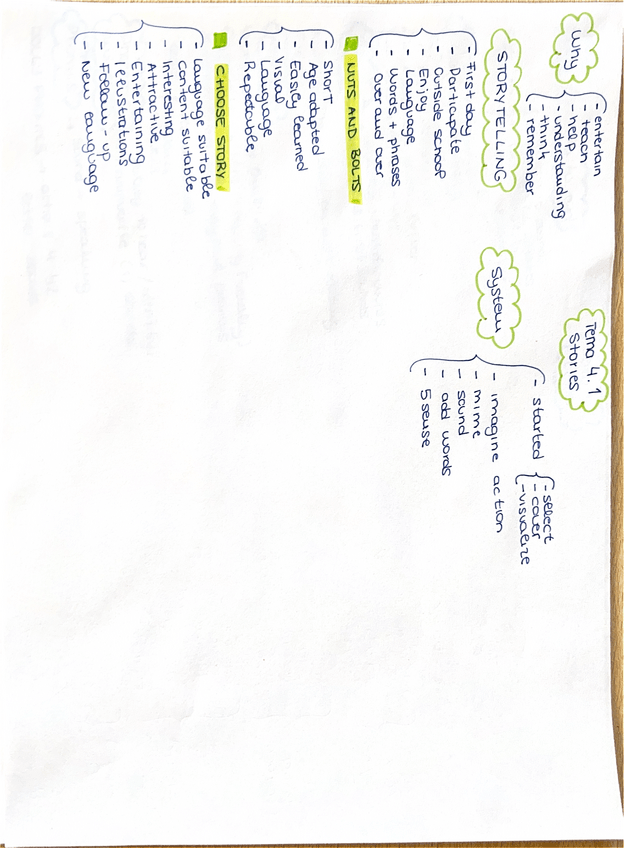 Tema 4.1
Stories
Why
- entertain
- teach
- help
- understanding
- think
- remember
STORYTELLING
- First day
- Participate
- Outside school
- Enjoy
- Language
- Words + phrases
- Over and over
NUTS AND BOLTS
- Short
- Age adapted
- Easily learned
- Visual
- Language
- Repeatable
CHOOSE STORY
- Language suitable
- Content suitable
- Interesting
- Attractive
- Entertaining
- Illustrations
- Follow-up
- New language
System
- started
- select
- cover
- visualize
- imagine action
- mime
- sound
- add words
- 5 sense